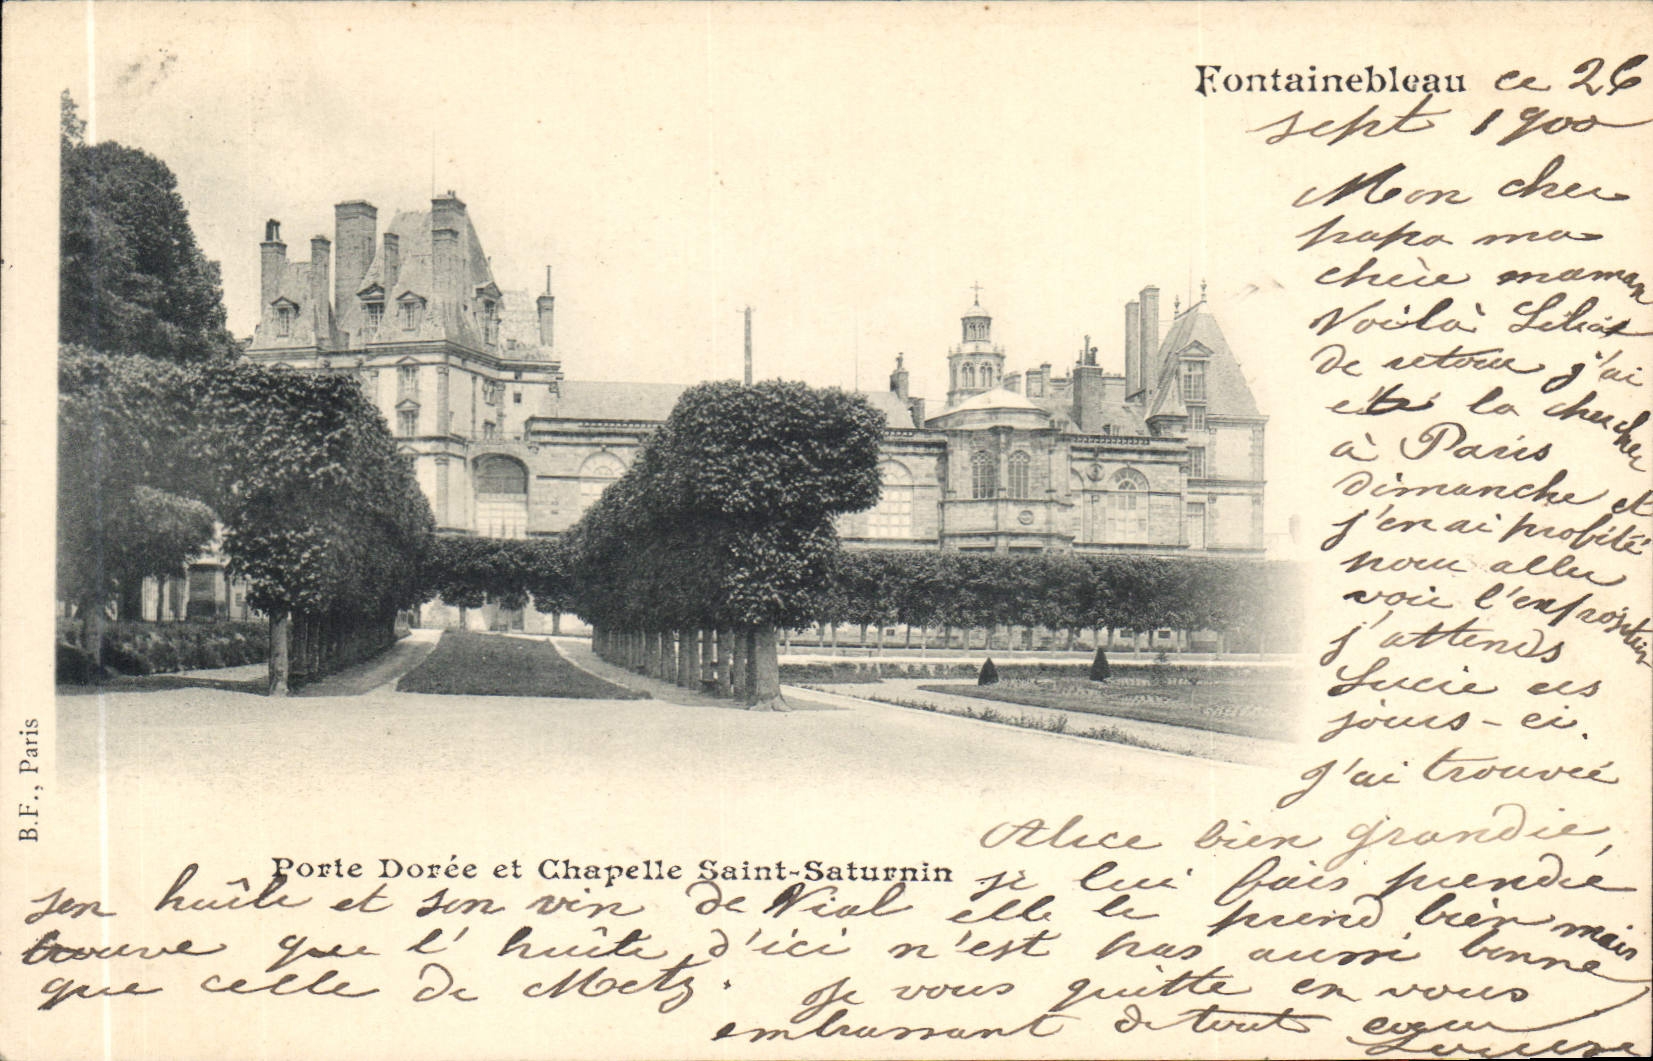 Fontainebleau ce 26
sept 1900
Mon cher
papa ma
chère maman
Voilà
de retour j'ai
été la chercher
à Paris
Dimanche et
j'en ai profité
pour aller
voir l'exposition
j'attends
Lucie ces
jours-ci.
j'ai trouvée
Alice bien grandie,
Porte Dorée et Chapelle Saint-Saturnin
je lui fais prendre
son huile et son vin de Vial elle le prend bien mais
trouve que l'huile d'ici n'est pas aussi bonne
que celle de Metz. Je vous quitte en vous
embrassant de tout cœur
B.F., Paris